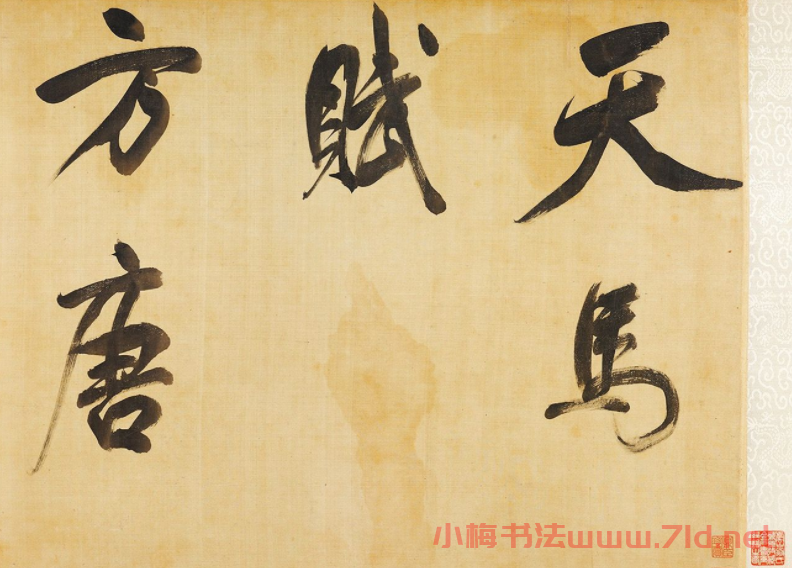 天馬
賦
方唐
小梅书法www.7ld.net